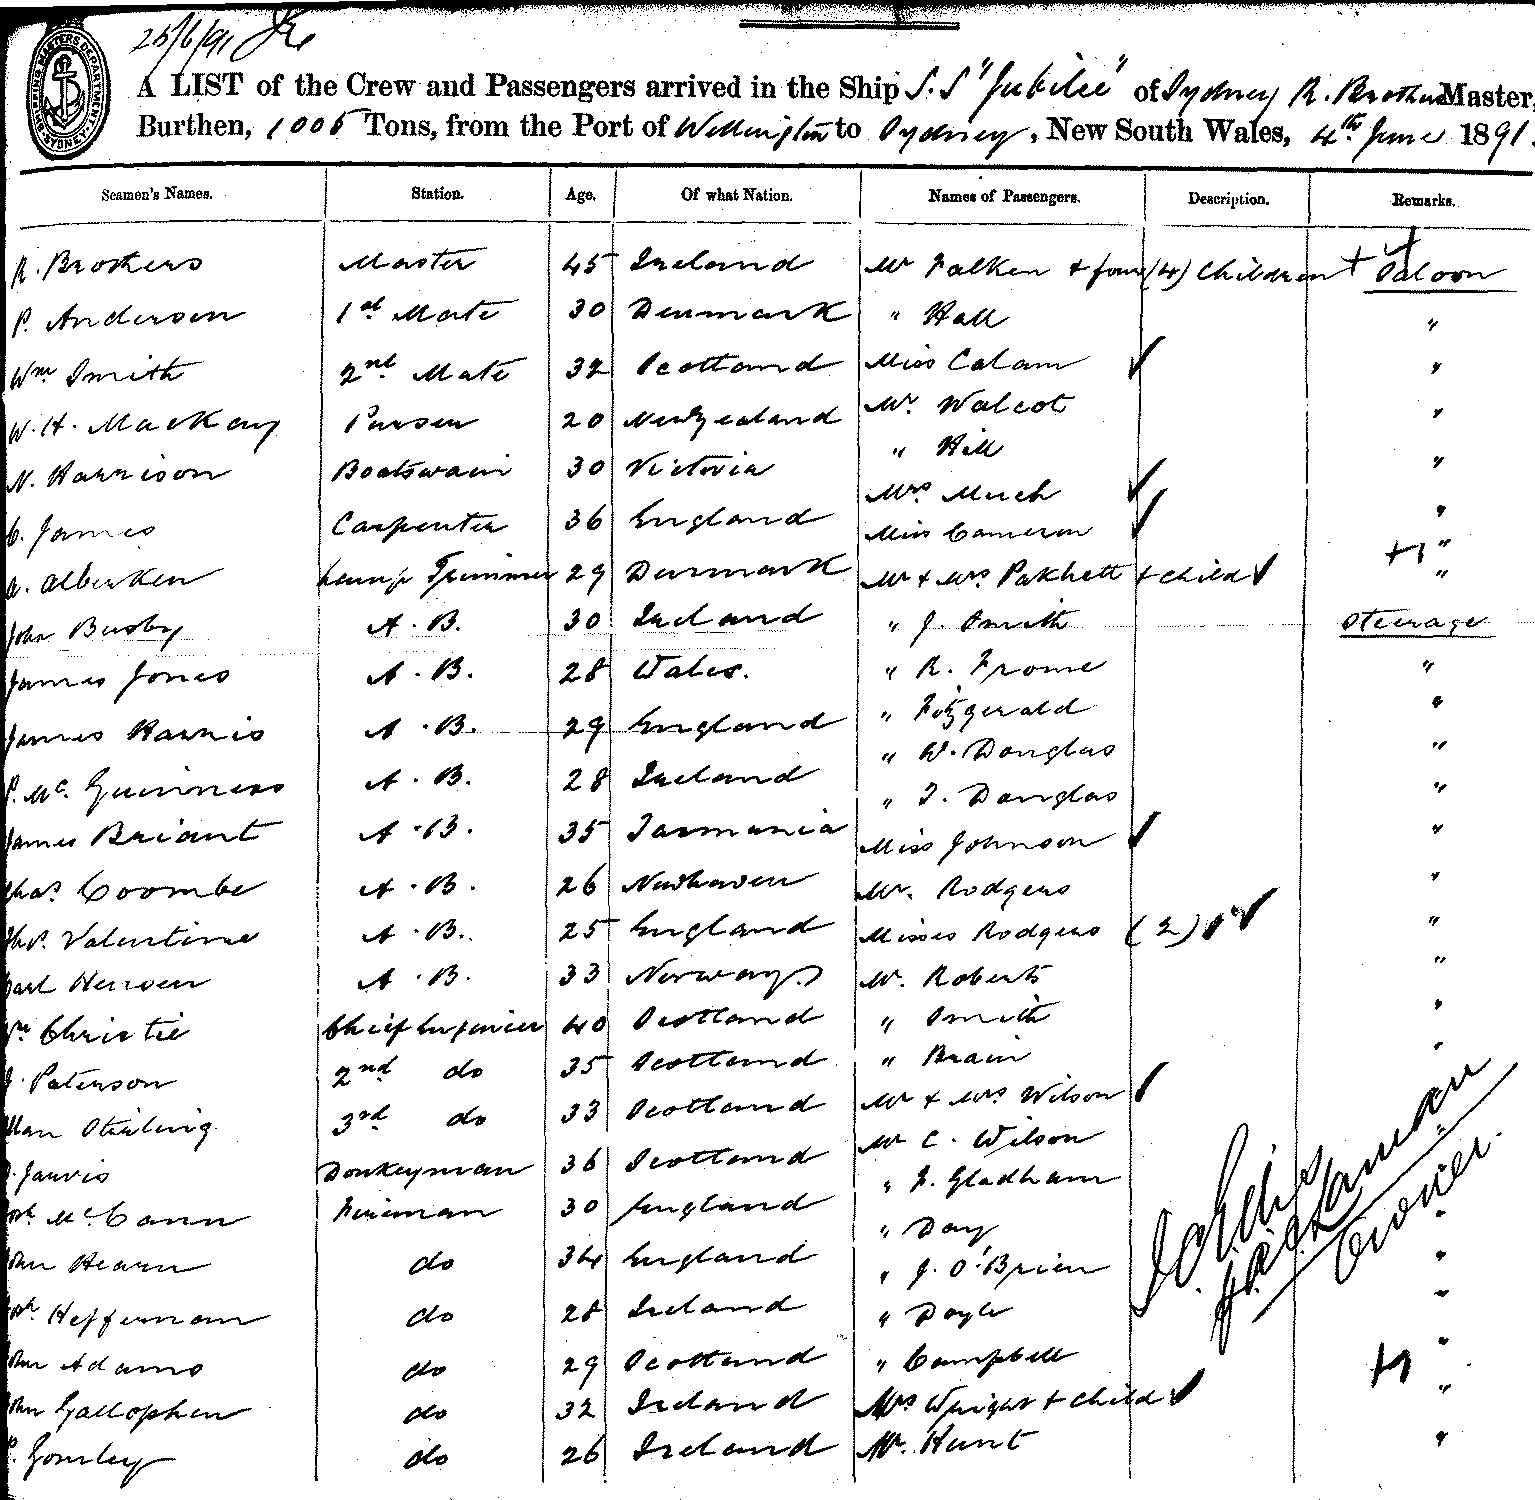 25/6/91
A LIST of the Crew and Passengers arrived in the Ship S.S "Jubilee" of Sydney R. Brothers Master,
Burthen, 1005 Tons, from the Port of Wellington to Sydney, New South Wales, 4th June 1891.
Seamen's Names. Station. Age. Of what Nation. Names of Passengers. Description. Remarks.
R. Brothers Master 45 Ireland Mr Falken & four (4) Children Saloon
P. Andersen 1st Mate 30 Denmark " Hall "
Wm Smith 2nd Mate 32 Scotland Miss Calam "
W. H. MacKay Purser 20 New Zealand Mr. Walcot "
N. Harrison Boatswain 30 Victoria " Hill "
C. James Carpenter 36 England Mrs Much "
Miss Cameron "
A. Alberken Lamp Trimmer 29 Denmark Mr & Mrs Pakhett & child "
John Busby A. B. 30 Ireland " J. Smith Steerage
James Jones A. B. 28 Wales. " R. Frome "
James Harris A. B. 29 England " Fitzgerald "
" W. Douglas "
P. McGuinness A. B. 28 Ireland " T. Douglas "
James Briant A. B. 35 Tasmania Miss Johnson "
Chas Coombe A. B. 26 Newhaven Mr. Rodgers "
Thos. Valentine A. B. 25 England Misses Rodgers (2) "
Carl Hensen A. B. 33 Norway Mr. Roberts "
Wm Christie Chief Engineer 40 Scotland " Smith "
J. Paterson 2nd do 35 Scotland " Brain "
Allan Stirling 3rd do 33 Scotland Mr & Mrs Wilson
Mr C. Wilson
Jarvis Donkeyman 36 Scotland " F. Gladham
McCann Fireman 30 England " Day "
John Hearn do 34 England " J. O'Brien "
Heffernan do 28 Ireland " Doyle "
John Adams do 29 Scotland " Campbell "
John Gallopher do 32 Ireland Mrs Wright & child "
P. Gomley do 26 Ireland Mr. Hunt "